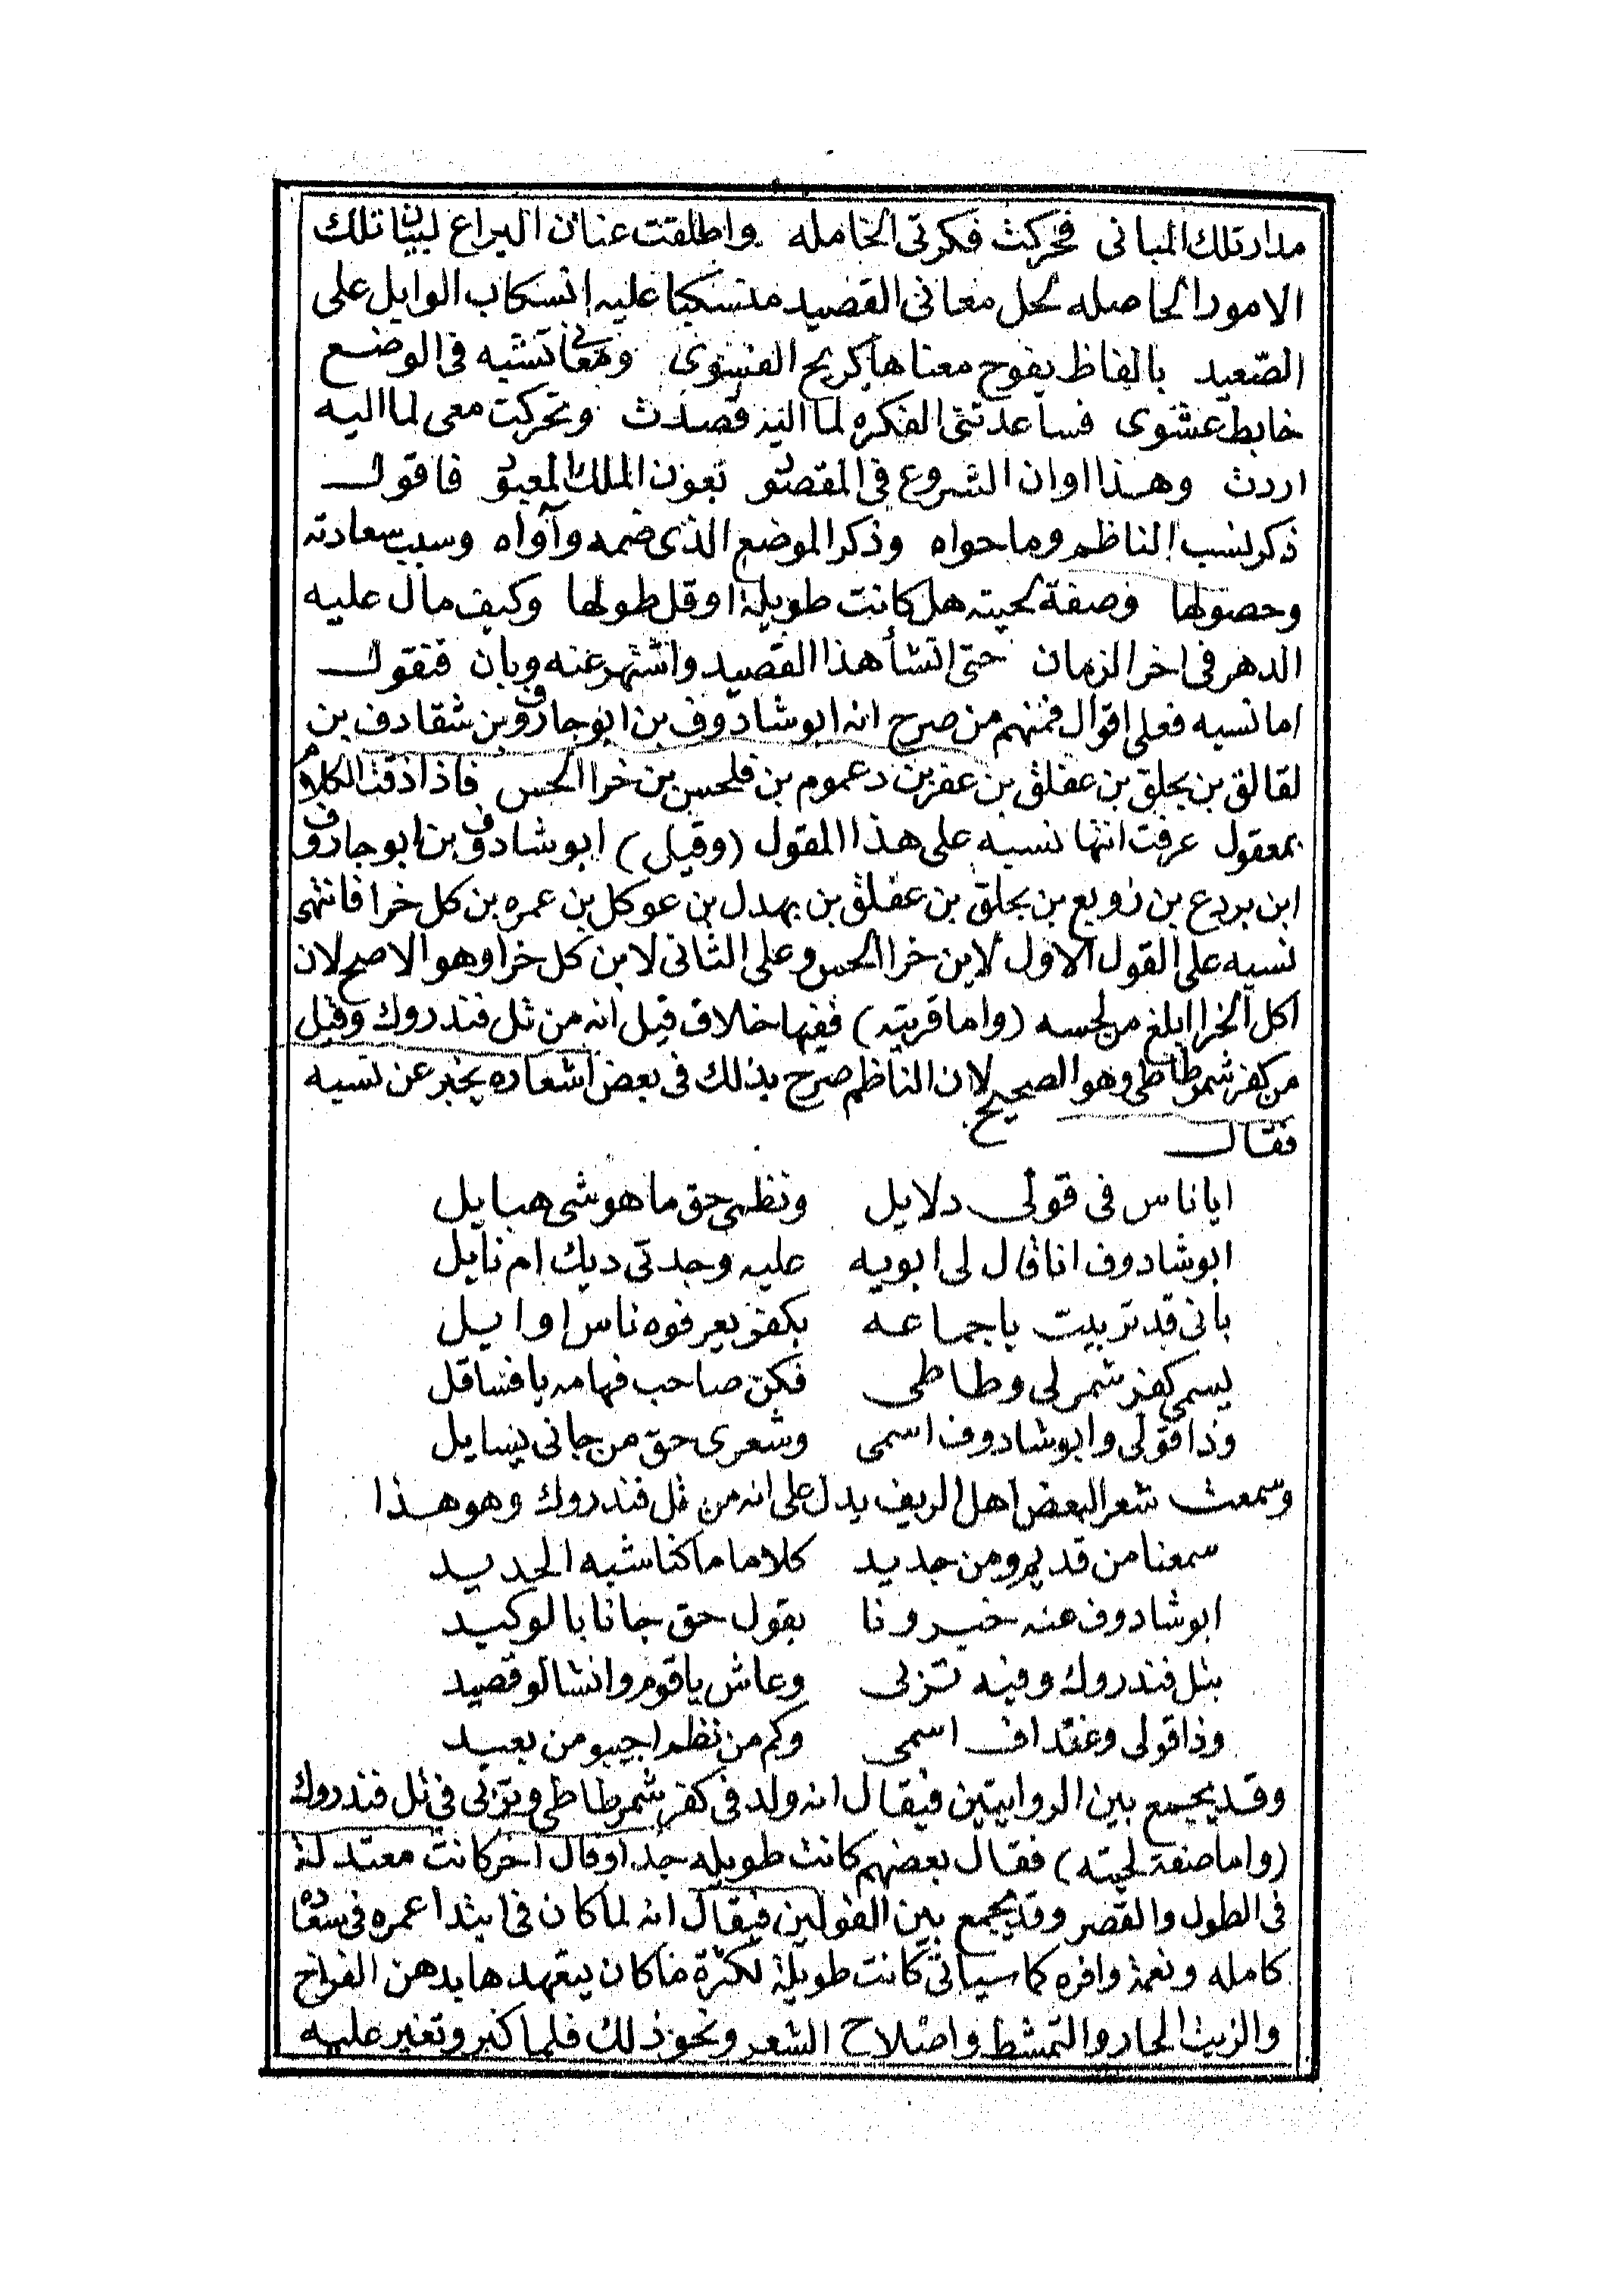 مدار تلك المباني فحركت فكرتي الخامله واطلقت عنان اليراع لبيان تلك
الامور الحاصله لحل معاني القصيد منسكبا عليه انسكاب الوابل على
الصّعيد بالفاظ يفوح معناها كريح الفسوى ومعاني تشبه في الوضع
خابط عشوى فساعدتني الفكره لما اليه قصدت وتحركت معى لما اليه
اردت وهذا اوان الشروع في المقصود بعون الملك المعبود فاقول
ذكر نسب الناظم وما حواه وذكر الموضع الذى ضمه وآواه وسبب سعادته
وحصولها وصفة لحيته هل كانت طويلة او قل طولها وكيف مال عليه
الدهر فى اخر الزمان حتى انشأ هذا القصيد واشتهر عنه وبان فنقول
اما نسبه فعلى اقوال فمنهم من صرح انه ابو شادوف بن ابو جاروف بن شقادف بن
لقالق بن بحلق بن عفلق بن عفر بن دعموم بن فلحس بن خرا الحس فاذا ذقت الكلام
بمعقول عرفت انتها نسبه على هذا المقول (وقيل) ابو شادوف بن ابو جاروف
ابن بردع بن زوبع بن بحلق بن عفلق بن بهدل بن عوكل بن عمره بن كل خرا فانتهى
نسبه على القول الاول لابن خرا الحس وعلى الثانى لابن كل خرا وهو الاصح لان
اكل الخرا ابلغ من لحسه (واما قريته) ففيها خلاف قيل انه من تل فندروك وقيل
من كفر شمرطاطى وهو الصحيح لان الناظم صرح بذلك فى بعض اشعاره يخبر عن نسبه
فقال
ايا ناس فى قولى دلايل ونظمى حق ما هو شى هبايل
ابو شادوف انا قال لى ابويه عليه وجدتى ديك ام نايل
بانى قد تربيت يا جماعه بكفر يعرفوه ناس اوايل
يسمى كفر شمر لى وطاطى فكن صاحب فهامه يا فساقل
وذا قولى وابو شادوف اسمى وشعرى حق من جانى يسايل
وسمعت شعرا لبعض اهل الريف يدل على انه من تل فندروك وهو هذا
سمعنا من قديم ومن جديد كلاما ما كنا شبه الحديد
ابو شادوف عنه خبرونا بقول حق جانا بالوكيد
بتل فندروك وفيه تربى وعاش يا قوم وانشا لو قصيد
وذا قولى وعقداف اسمى وكم من نظم اجيبو من بعيد
وقد يجمع بين الروايتين فيقال انه ولد فى كفر شمرطاطى وتربى فى تل فندروك
(واما صفة لحيته) فقال بعضهم كانت طويله جدا وقال اخر كانت معتدلة
فى الطول والقصر وقد يجمع بين القولين فيقال انه لما كان فى ابتدا عمره فى سعاده
كامله ونعمة وافره كما سياتى كانت طويلة لكثرة ما كان يتعهدها بدهن الفراخ
والزيت الحار والتمشط واصلاح الشعر ونحو ذلك فلما كبر وتغير عليه